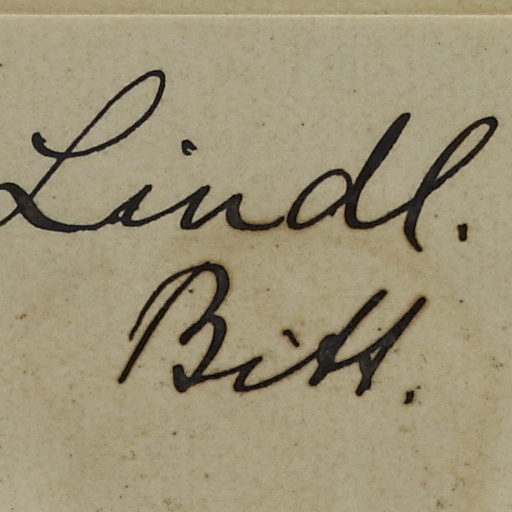 Lindl.
Bitt.